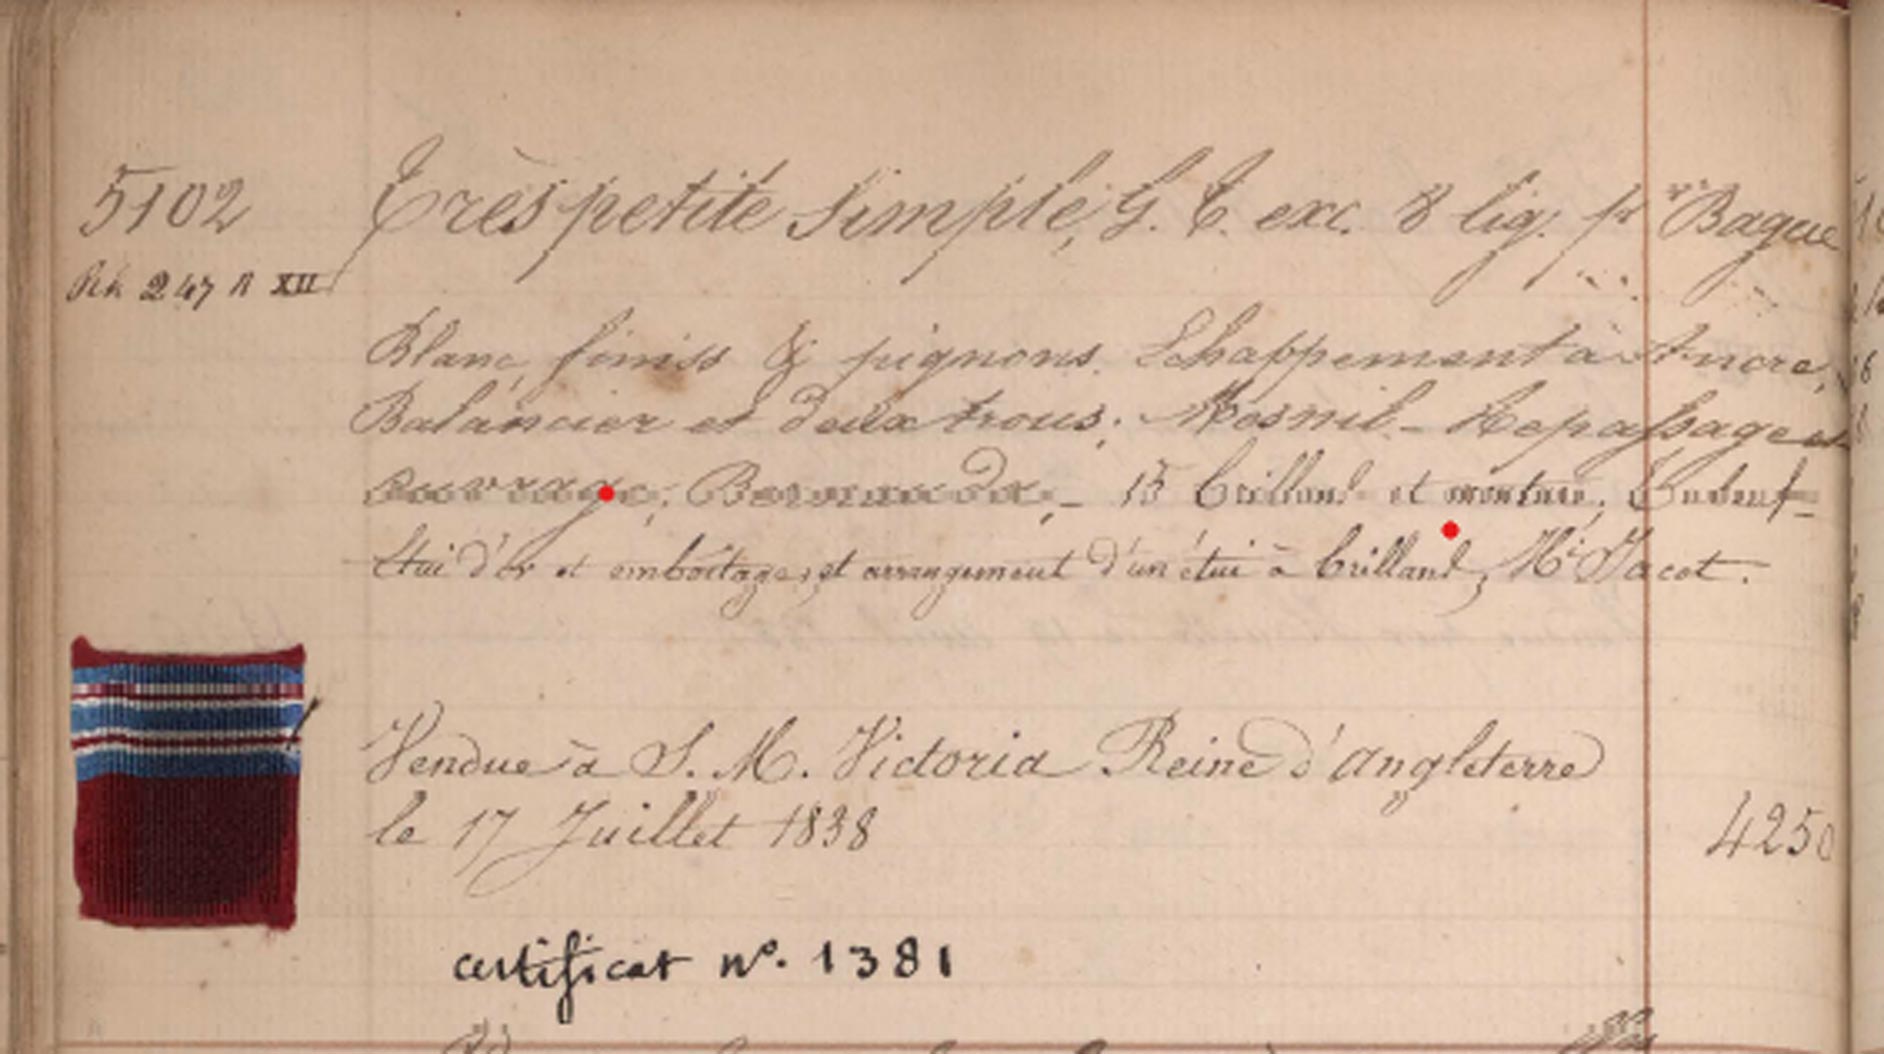 5102 Très petite simple, G. C. exc. 8 lig. pr Baque
247 XII
Blanc, finiss & pignons. Echappement à Ancre,
Balancier et deux trous; Mesnil - Repassage et
15 brilland et monture,
Etui d'or et emboitage, et arrangement d'un étui à brilland, Mi Jacot.
Vendue à S. M. Victoria Reine d'Angleterre
le 17 Juillet 1838 4250
certificat no. 1381